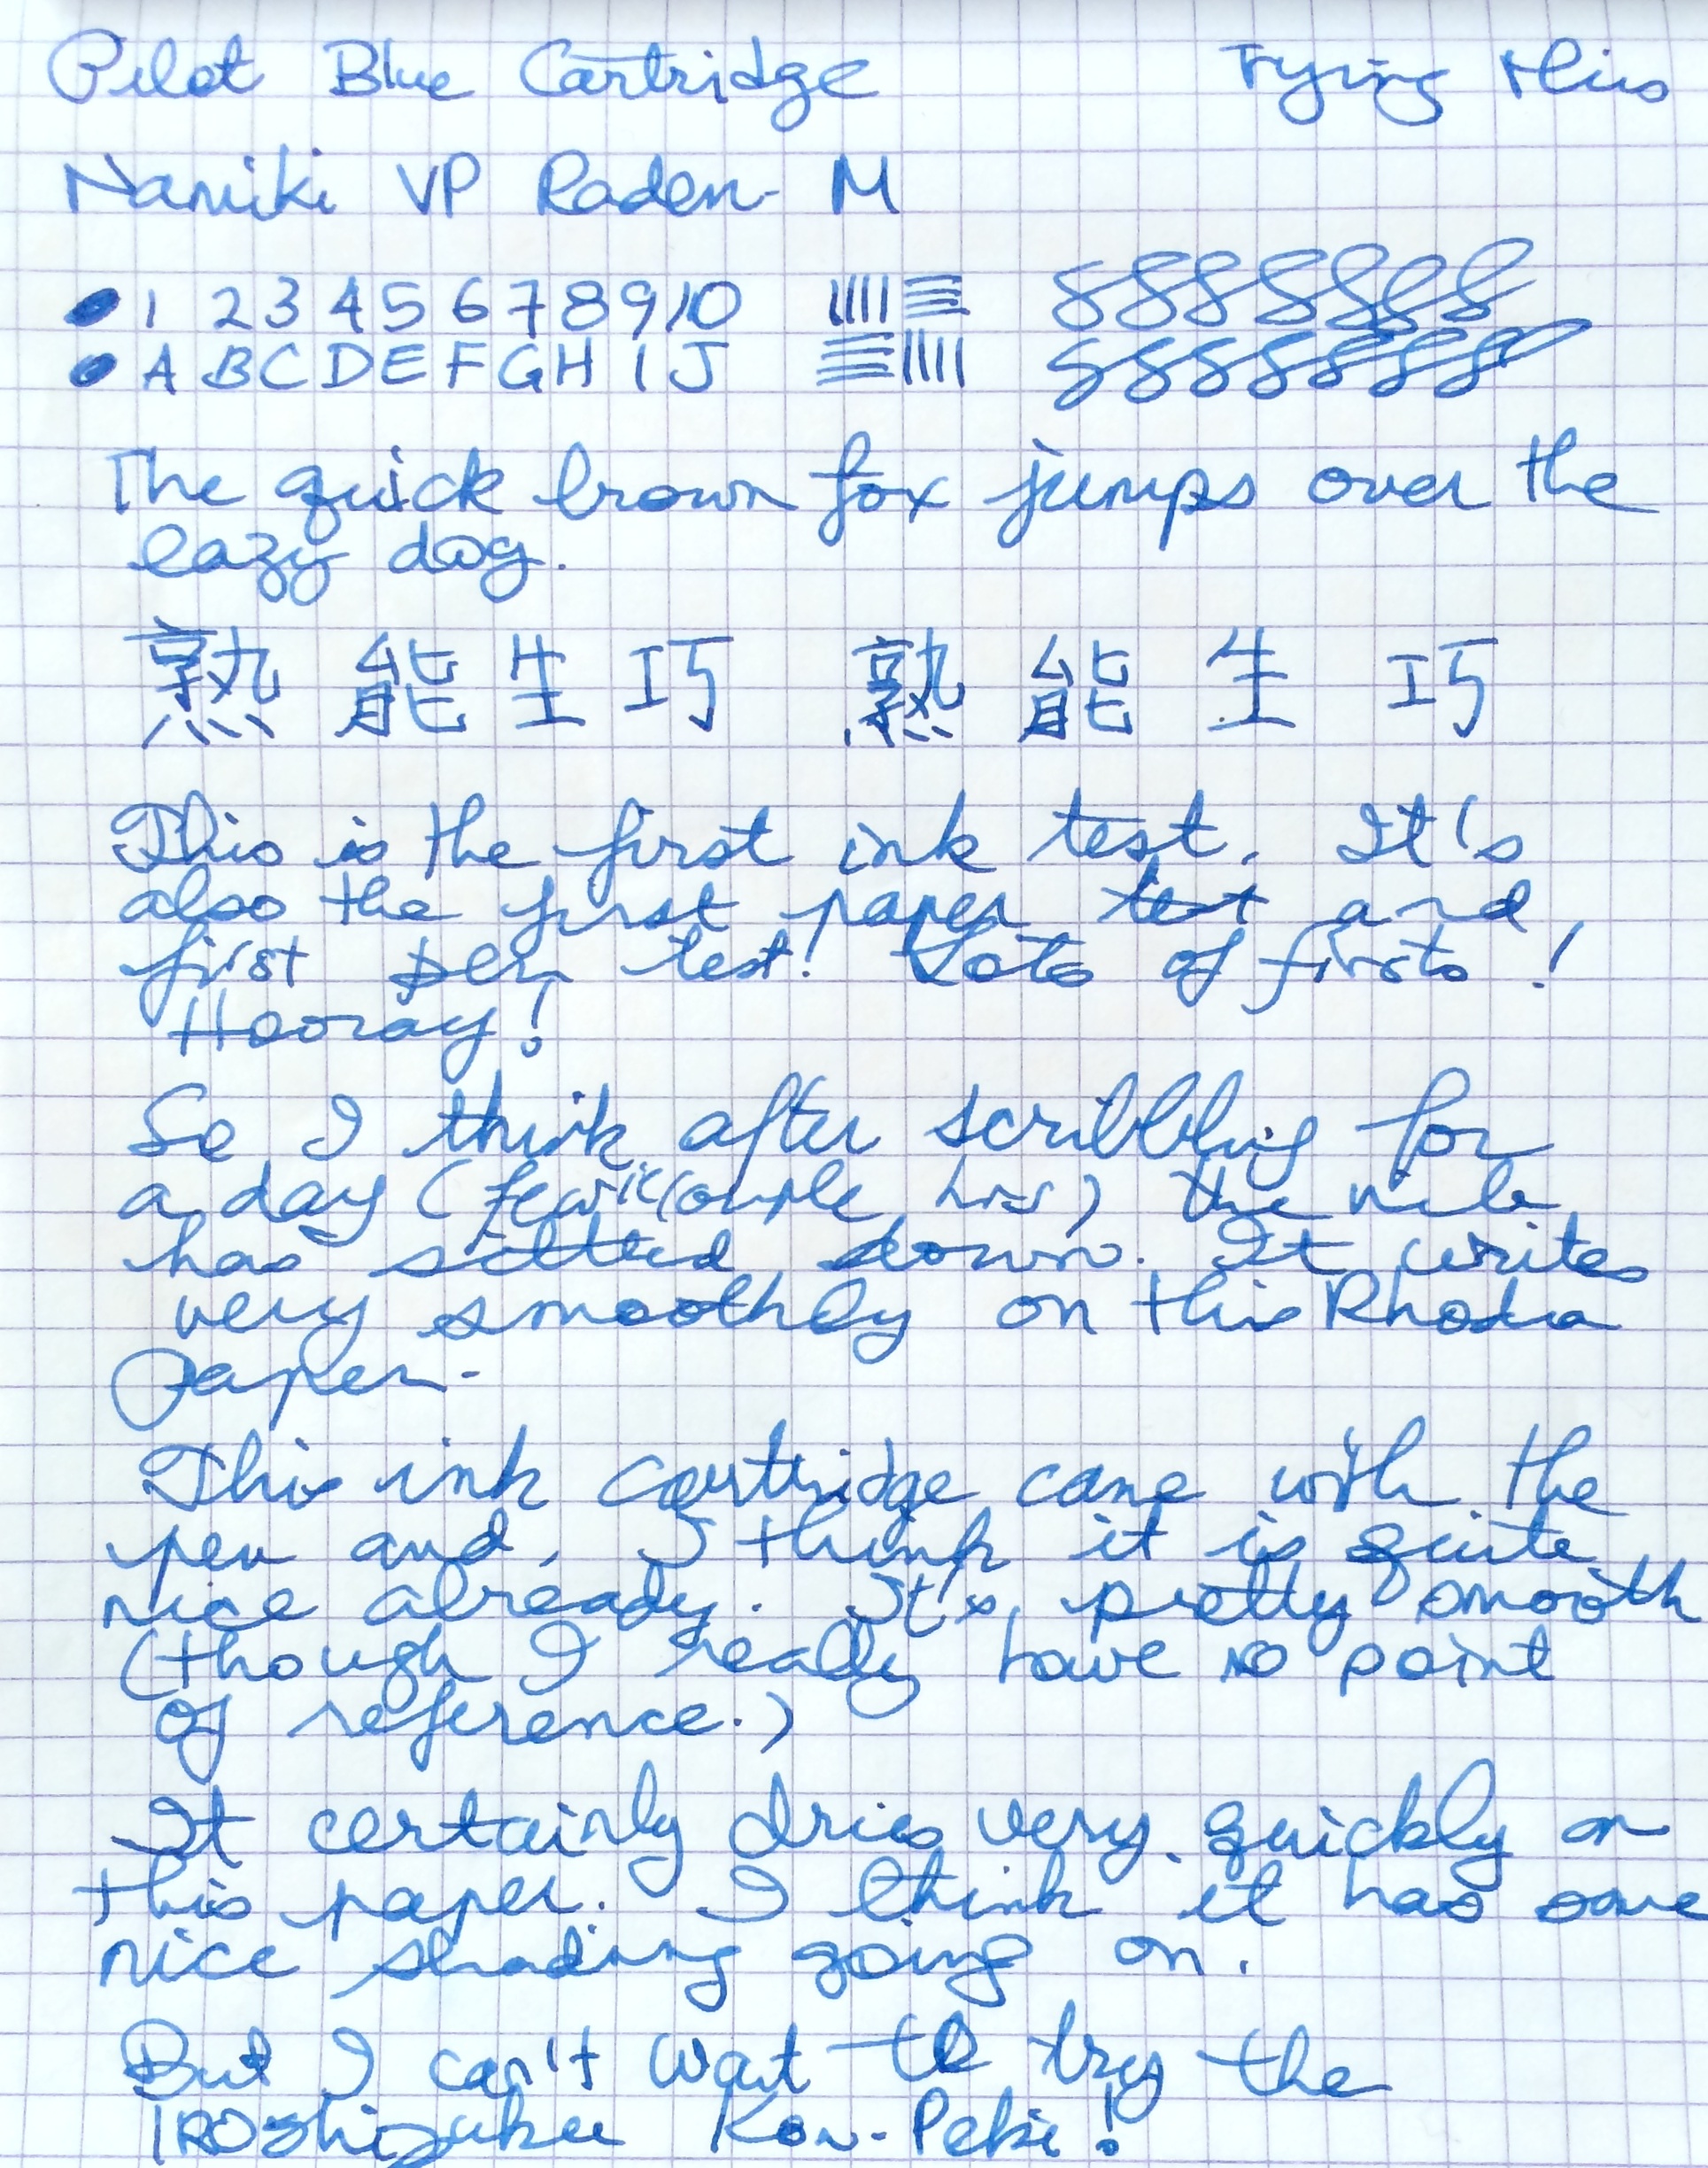 Pilot Blue Cartridge Trying this
Namiki VP Raden M
1 2 3 4 5 6 7 8 9 10
A B C D E F G H I J
The quick brown fox jumps over the
lazy dog.
熟能生巧 熟能生巧
This is the first ink test. It's
also the first paper test and
first pen test! Lots of firsts!
Hooray!
So I think after scribbling for
a day (few couple hrs) the nib
has settled down. It writes
very smoothly on this Rhodia
paper.
This ink cartridge came with the
pen and, I think it is quite
nice already. It's pretty smooth
(though I really have no point
of reference.)
It certainly dries very quickly on
this paper. I think it has some
nice shading going on.
But I can't wait to try the
IROshizuku Kon-Peki!